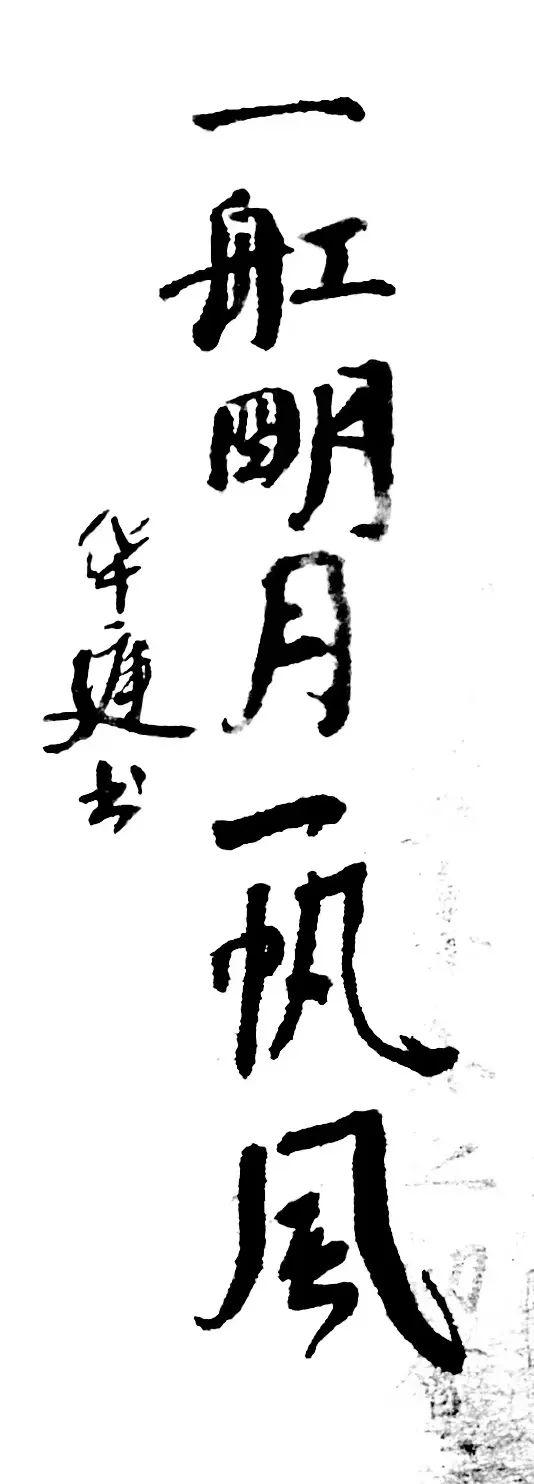 一舡明月一帆風
华庭书